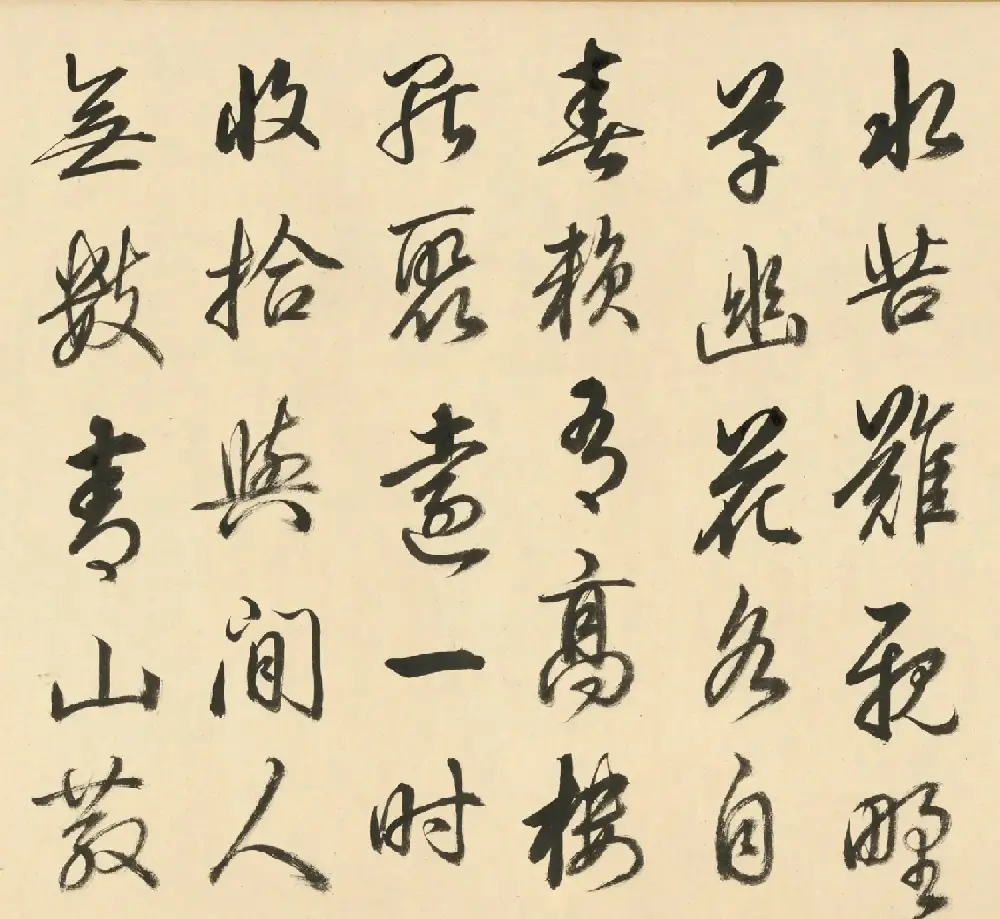 水苦難親野
草幽花各自
春賴有高樓
能聚遠一时
收拾與閒人
無數青山散